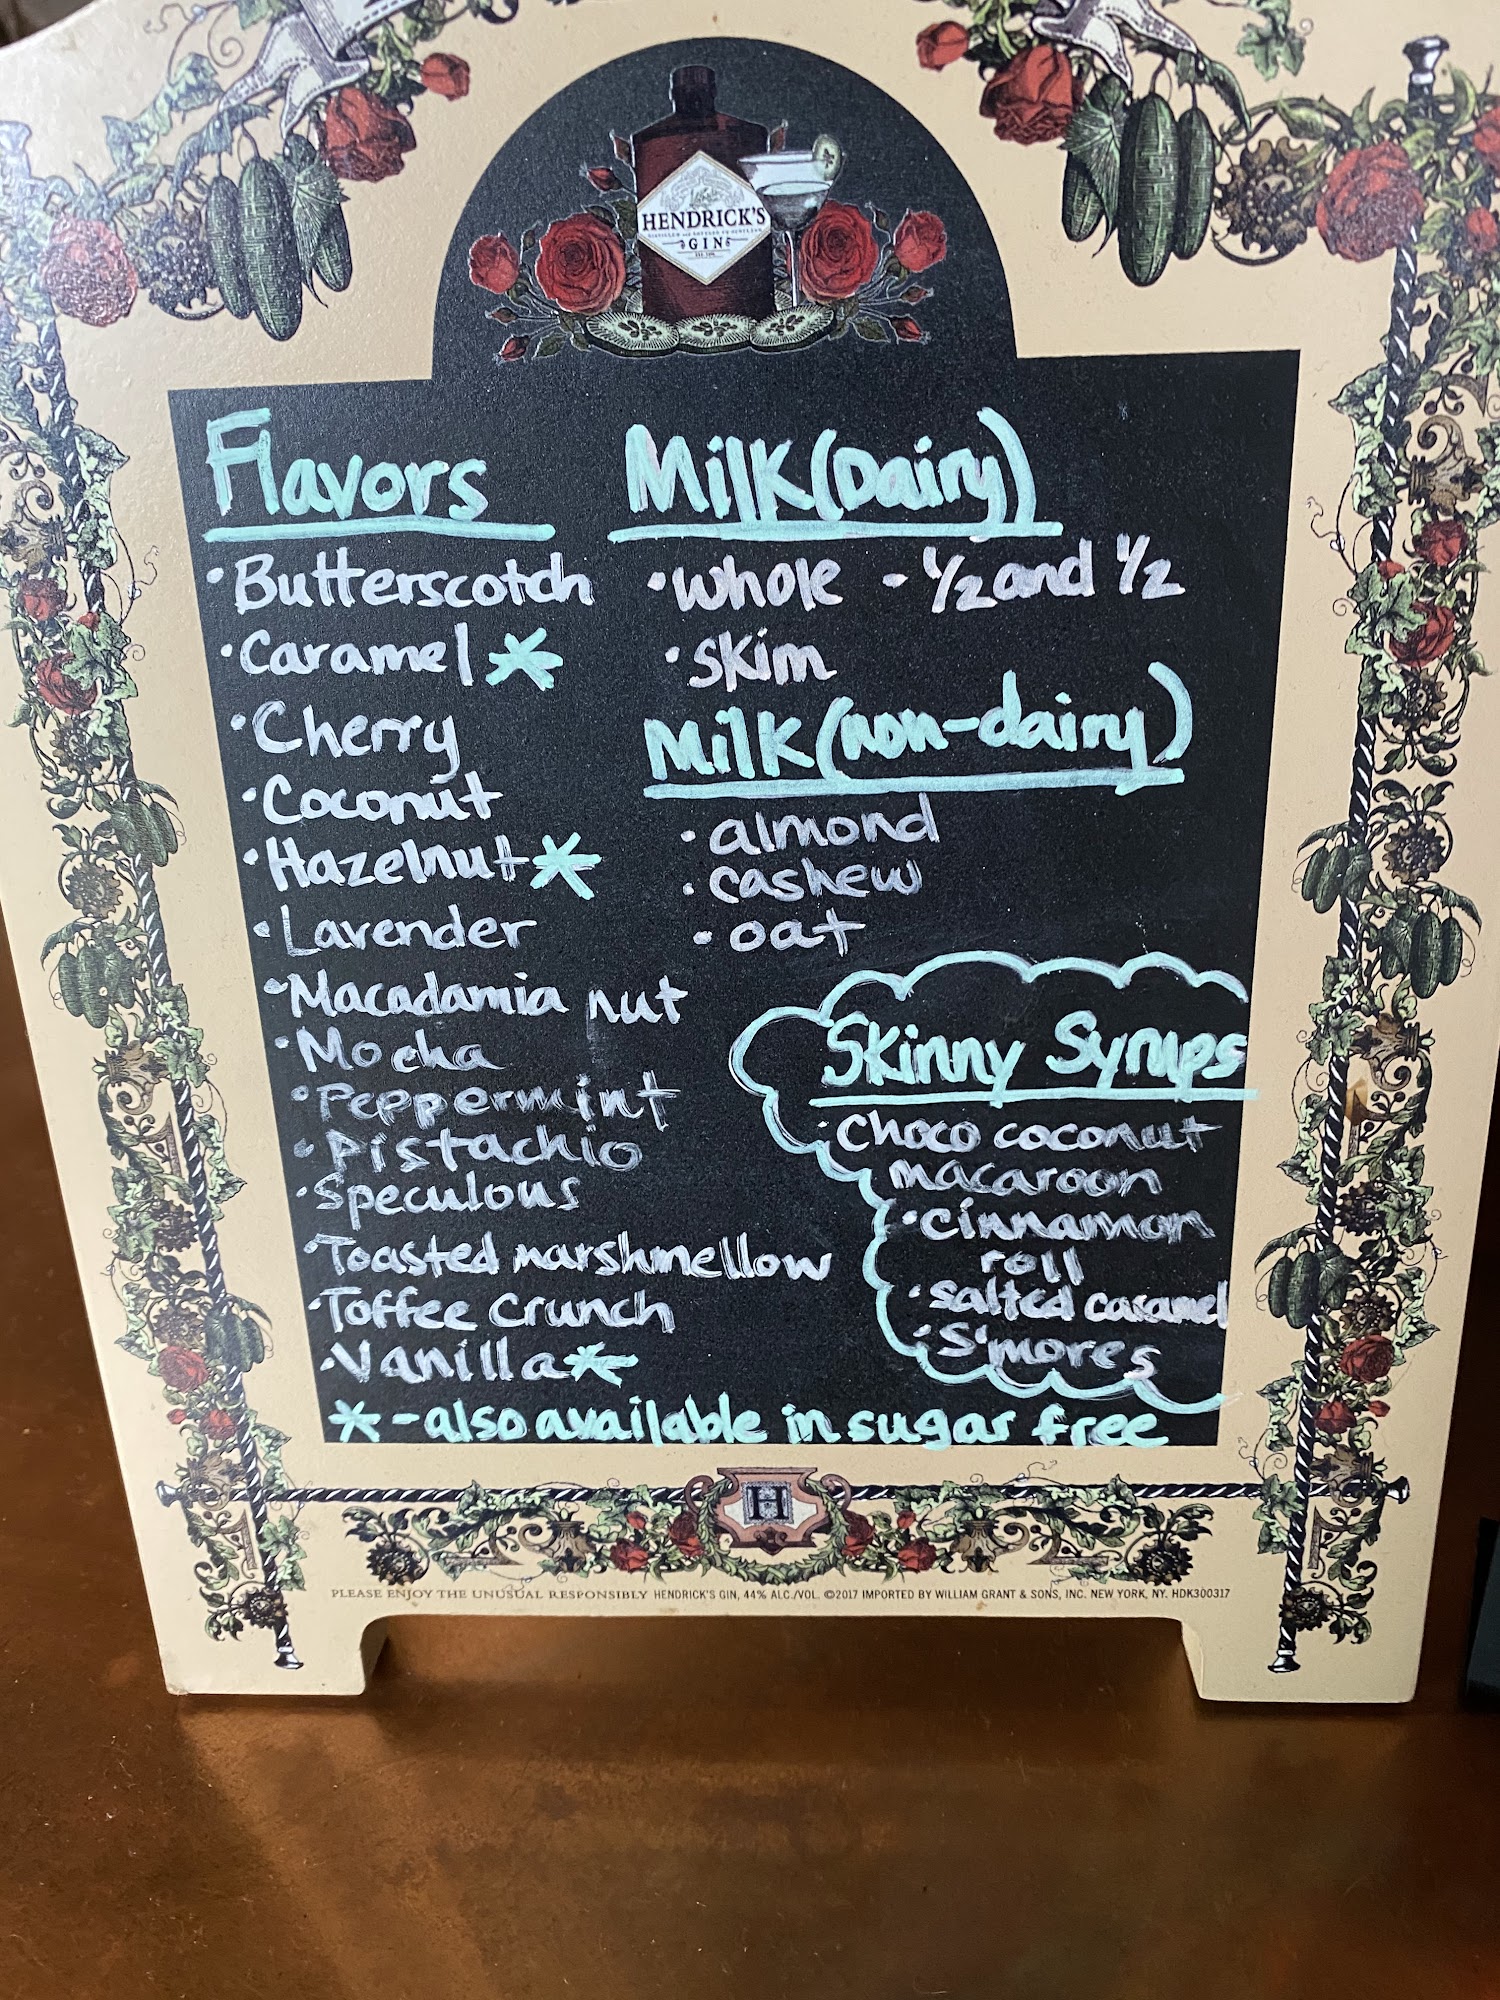 HENDRICK'S
GIN
Flavors
• Butterscotch
• Caramel *
• Cherry
• Coconut
• Hazelnut *
• Lavender
• Macadamia nut
• Mocha
• Peppermint
• Pistachio
• Speculous
• Toasted marshmellow
• Toffee Crunch
• Vanilla *
* - also available in sugar free
Milk (Dairy)
• whole - 1/2 and 1/2
• skim
Milk (non-dairy)
• almond
• cashew
• oat
Skinny Syrups
• choco coconut
macaroon
• cinnamon
roll
• salted caramel
• S'mores
H
PLEASE ENJOY THE UNUSUAL RESPONSIBLY HENDRICK'S GIN, 44% ALC./VOL. ©2017 IMPORTED BY WILLIAM GRANT & SONS, INC. NEW YORK, NY. HDK300317